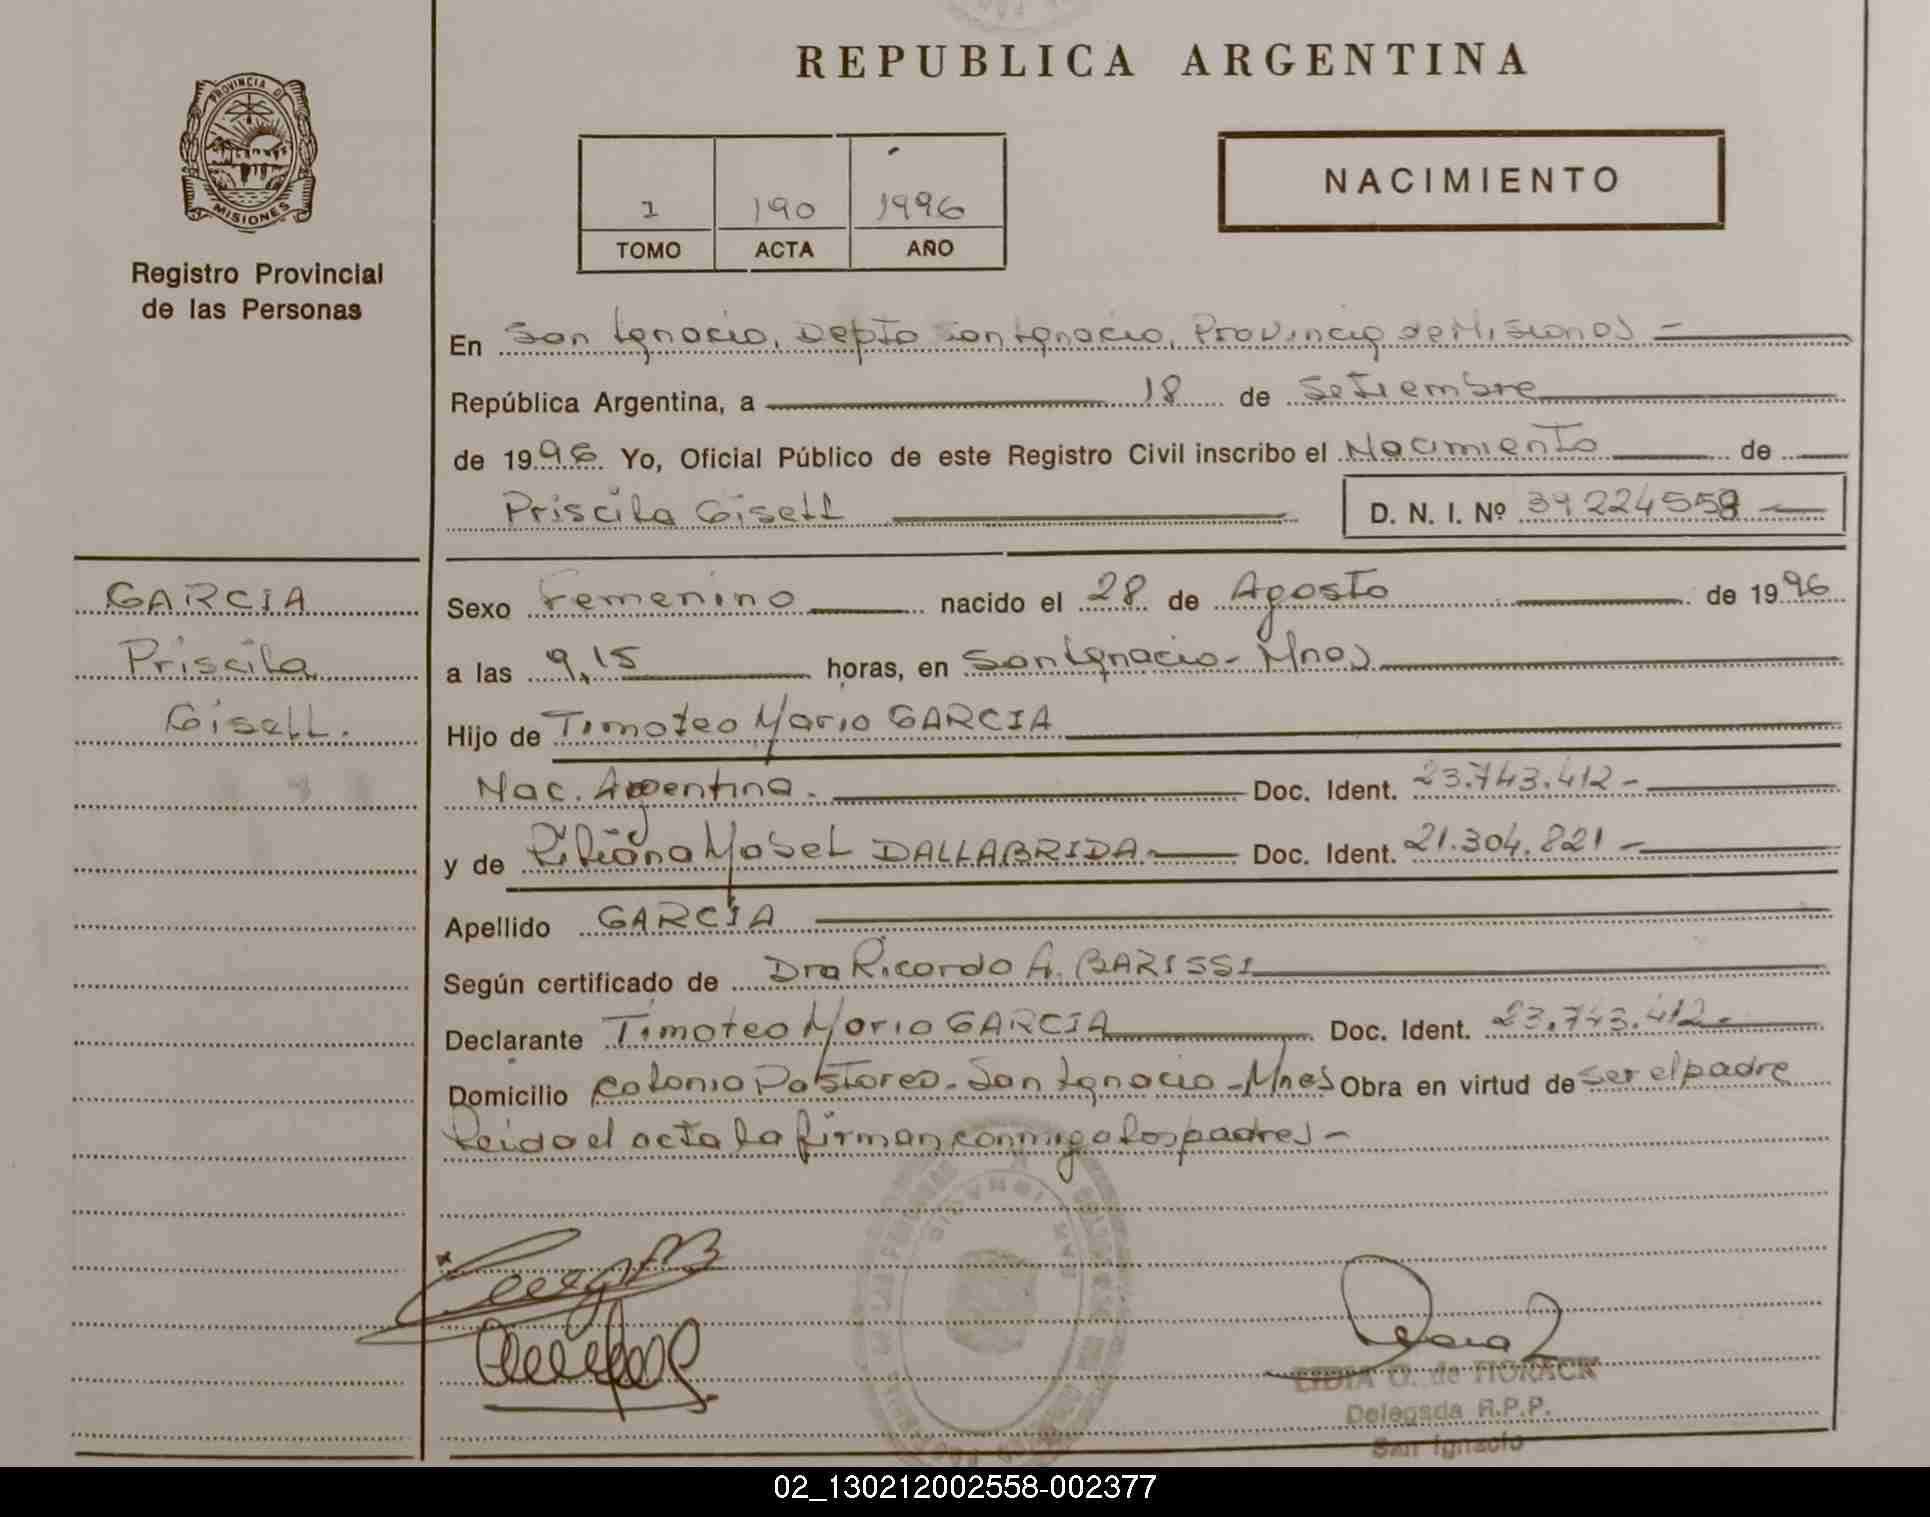 REPUBLICA ARGENTINA
PROVINCIA D
MISIONES
Registro Provincial
de las Personas
1 190 1996
TOMO ACTA AÑO
NACIMIENTO
En San Ignacio, Depto San Ignacio, Provincia de Misiones
República Argentina, a 18 de Setiembre
de 1996 Yo, Oficial Público de este Registro Civil inscribo el Nacimiento de
Priscila Gisell D. N. I. Nº 39224558
GARCIA
Priscila
Gisell.
Sexo Femenino nacido el 28 de Agosto de 1996
a las 9,15 horas, en San Ignacio - Mnes
Hijo de Timoteo Mario GARCIA
Nac. Argentina. Doc. Ident. 23.743.412-
y de Liliana Mabel DALLABRIDA Doc. Ident. 21.304.821-
Apellido GARCIA
Según certificado de Dra Ricardo A. BARISSI
Declarante Timoteo Mario GARCIA Doc. Ident. 23.743.412-
Domicilio Colonia Pastoreo - San Ignacio - Mnes Obra en virtud de ser el padre
Leida el acta la firman conmigo los padres -
LIDIA G. de
Delegada R.P.P.
San Ignacio
02_130212002558-002377